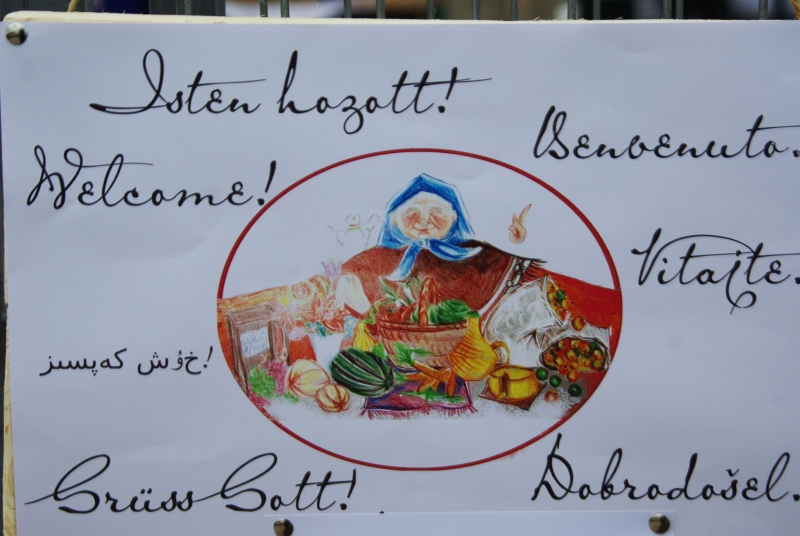 Isten hozott!
Benvenuto.
Welcome!
Vitajte.
خۇش كەپسىز!
Grüss Gott!
Dobrodošel.